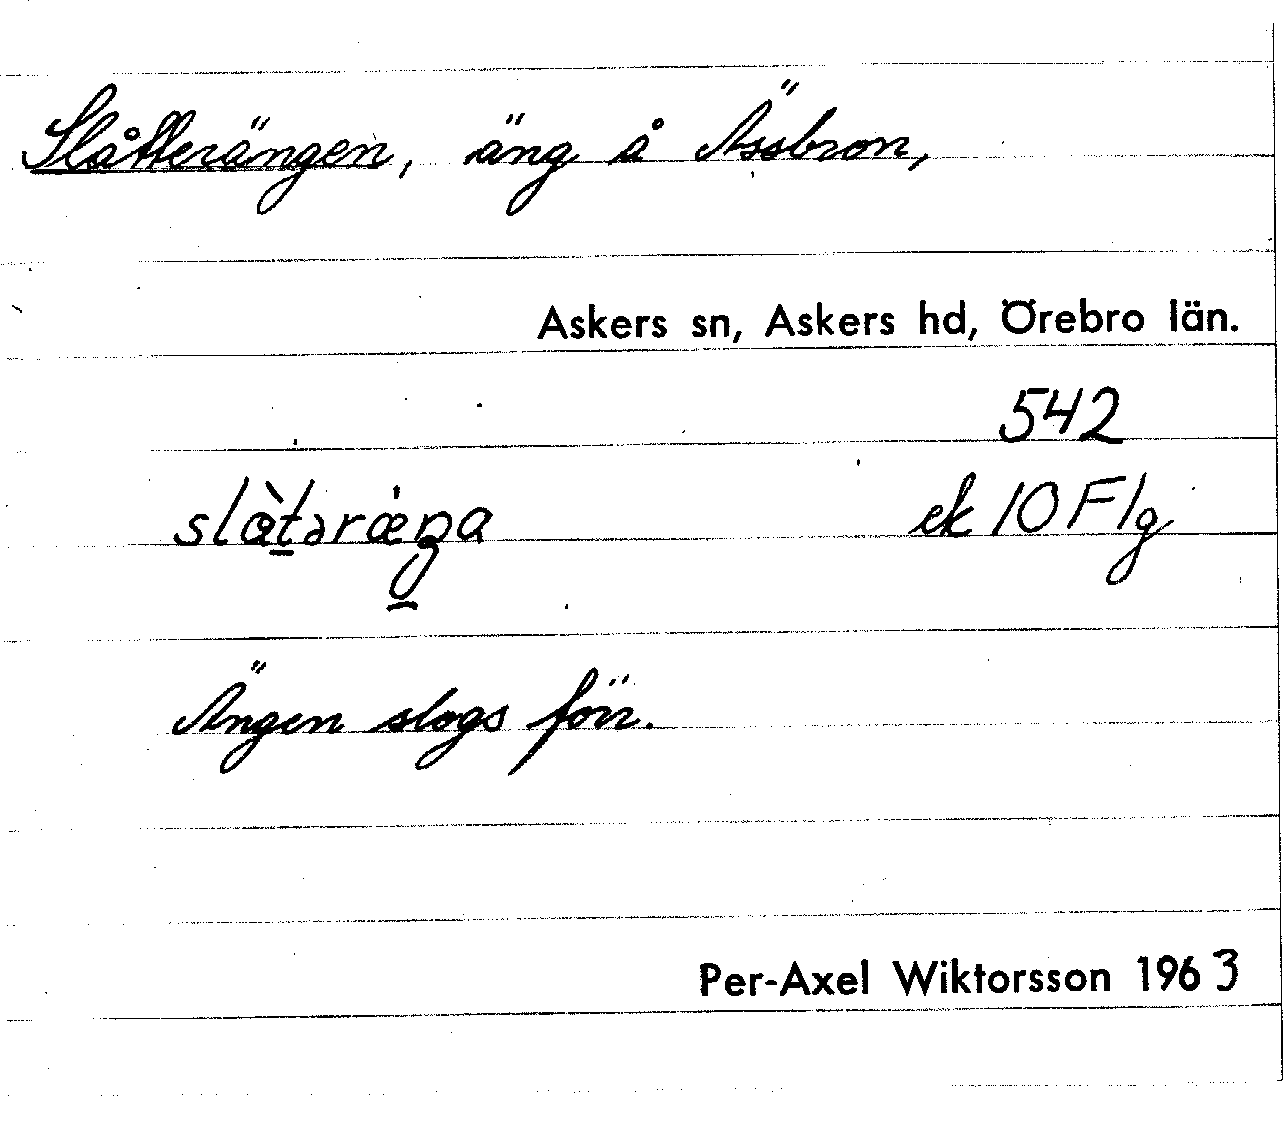 Slåtterängen, äng å Ässbron,
Askers sn, Askers hd, Örebro län.
542
ek 10 F lg
Ängen slogs förr.
Per-Axel Wiktorsson 1963